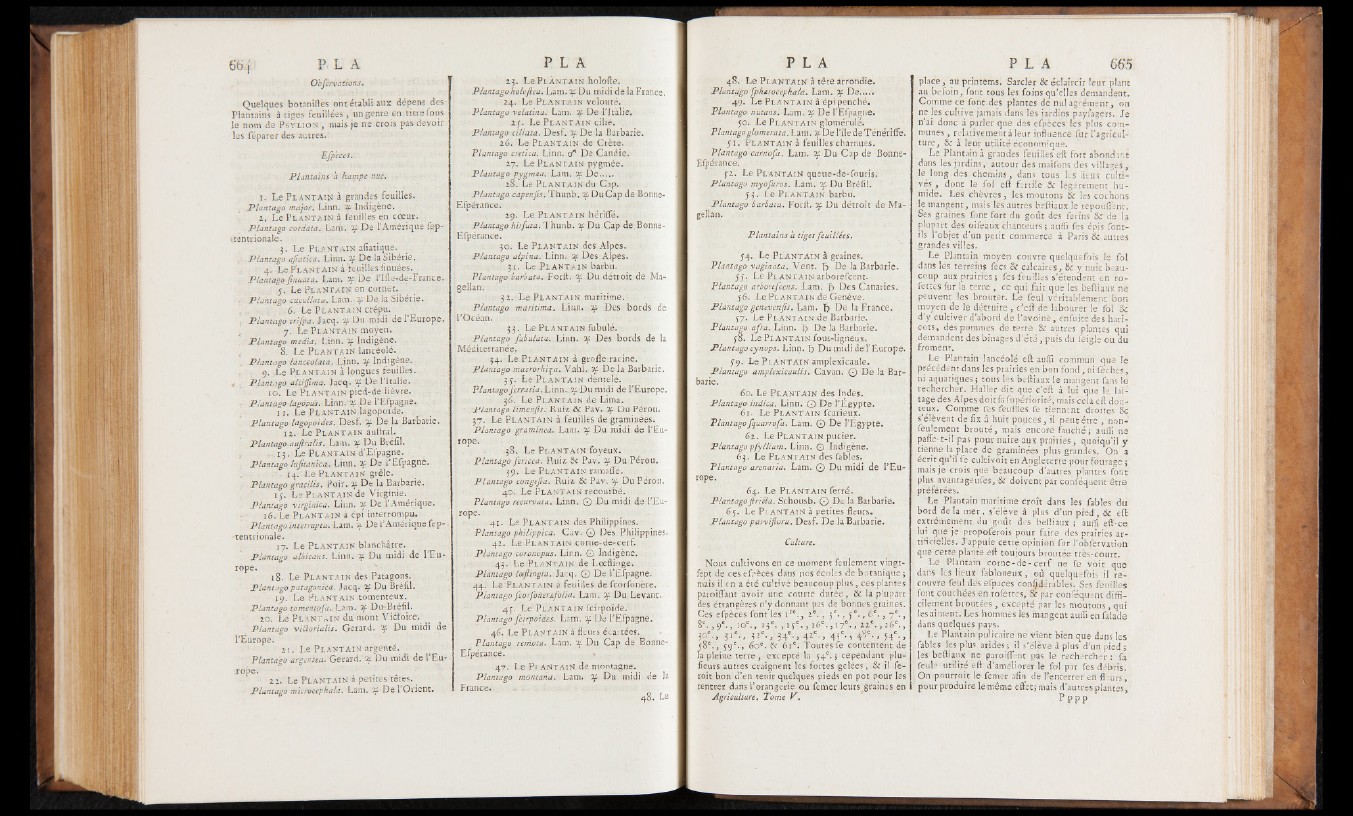 664 P L A
Obſervations.
Quelques botaniſtes ont établi aux dépens des
Plantains à tiges feuillées, un genre en titre ſous
le nom de PSYLION, mais je ne crois pas devoir
les ſéparer des autres.
Eſpèces.
Plantains à hampe nue.
1. Le PLANTAIN à grandes feuilles.
Plantago major. Linn. ♃ Indigène.
2. Le PLANTAIN à feuilles en cœur.
Plantago cordata. Lam. ♃ De l'Amérique ſep-
tentrionale.
3. Le PLANTAIN aſiatique.
Plantago aſiatica. Linn. ♃ De la Sibérie.
4. Le PLANTAIN à feuilles ſinuées.
Plantago ſinuata. Lam. ♃ De l'Iſle-de-France.
5. Le PLANTAIN en cornet.
Plantago cucullata. Lam. ♃ De la Sibérie.
6. Le PLANTAIN crépu.
Plantago criſpa. Jacq. ♃ Du midi de l'Europe.
7. Le PLANTAIN moyen.
Plantago media. Linn. ♃ Indigène.
8. Le PLANTAIN lancéolé.
Plantago lanceolata. Linn. ♃ Indigène.
9. Le PLANTAIN à longues feuilles.
Plantago altiſſima. Jacq. ♃ De l'Italie.
10. Le PLANTAIN pied-de lièvre.
Plantago lagopus. Linn. ♃ De l'Eſpagne.
11. Le PLANTAIN lagopoïde.
Plantago lagopoides. Desf. ♃ De la Barbarie.
12. Le PLANTAIN auſtral.
Plantago auſtralis. Lam. ♃ Du Bréſil.
13. Le PLANTAIN d'Eſpagne.
Plantago luſitanica. Linn. ♃ De l'Eſpagne.
14. Le PLANTAIN grêle.
Plantago gracilis. Poir. ♃ De la Barbarie.
15. Le PLANTAIN de Virginie.
Plantago virginica. Linn. ♃ De l'Amérique.
16. Le PLANTAIN à épi interrompu.
Plantago interrupta. Lam. ♃ De l'Amérique ſep-
tentrionale.
17. Le PLANTAIN blanchâtre.
Plantago albicans. Linn. ♃ Du midi de l'Eu-
rope.
18. Le PLANTAIN des Patagons.
Plantago patagonica. Jacq. ♃ Du Bréſil.
19. Le PLANTAIN tomenteux.
Plantago tomentoſa. Lam. ♃ Du Bréſil.
20. Le PLANTAIN du mont Victoire.
Plantago victorialis. Gerard. ♃ Du midi de
l'Europe.
21. Le PLANTAIN argenté.
Plantago argentea. Gerard. ♃ Du midi de l'Eu-
rope.
22. Le PLANTAIN à petites têtes.
Plantago microcephala. Lam. ♃ De l'Orient.
P L A
23. Le PLANTAIN holoſte.
Plantago holoſtea. Lam. ♃ Du midi de la France.
24. Le PLANTAIN velouté.
Plantago velutina. Lam. ♃ De l'Italie.
25. Le PLANTAIN cilié.
Plantago ciliata. Desf. ♃ De la Barbarie.
26. Le PLANTAIN de Crète.
Plantago cretica. Linn. ♂ De Candie.
27. Le PLANTAIN pygmée.
Plantago pygmea. Lam. ♃ De.....
28. Le PLANTAIN du Cap.
Plantago capenſis. Thunb. ♃ Du Cap de Bonne-
Eſpérance.
29. Le PLANTAIN hériſſé.
Plantago hirſuta. Thunb. ♃ Du Cap de Bonne-
Eſpérance.
30. Le PLANTAIN des Alpes.
Plantago alpina. Linn. ♃ Des Alpes.
31. Le PLANTAIN barbu.
Plantago barbata. Forſt. ♃ Du détroit de Ma-
gellan.
32. Le PLANTAIN maritime.
Plantago maritima. Linn. ♃ Des bords de
l'Océan.
33. Le PLANTAIN ſubulé.
Plantago ſubulata. Linn. ♃ Des bords de la
Méditerranée.
34. Le PLANTAIN à groſſe racine.
Plantago macrorhiza. Vahl. ♃ De la Barbarie.
35. Le PLANTAIN dentelé.
Plantago ſerraria. Linn. ♃ Du midi de l'Europe.
36. Le PLANTAIN de Lima.
Plantago limenſis. Ruiz & Pav. ♃ Du Pérou.
37. Le PLANTAIN à feuilles de graminées.
Plantago graminea. Lam. ♃ Du midi de l'Eu-
rope.
38. Le PLANTAIN ſoyeux.
Plantago ſericea. Ruiz & Pav. ♃ Du Pérou.
39. Le PLANTAIN ramaſſé.
Plantago congeſta. Ruiz & Pav. ♃ Du Pérou.
40. Le PLANTAIN recourbé.
Plantago recurvata. Linn. ☉ Du midi de l'Eu-
rope.
41. Le PLANTAIN des Philippines.
Plantago philippica. Cav. ☉ Des Philippines.
42. Le PLANTAIN corne-de-cerf.
Plantago coronopus. Linn. ☉ Indigène.
43. Le PLANTAIN de Lœflinge.
Plantago lœflingia. Jacq. ☉ De l'Eſpagne.
44. Le PLANTAIN à feuilles de ſcorſonère.
Plantago ſcorſonerafolia. Lam. ♃ Du Levant.
45. Le PLANTAIN ſcirpoïde.
Plantago ſcirpoides. Lam. ♃ De l'Eſpagne.
46. Le PLANTAIN à fleurs écartées.
Plantago remota. Lam. ♃ Du Cap de Bonne-
Eſpérance.
47. Le PLANTAIN de montagne.
Plantago montana. Lam. ♃ Du midi de la
France.
48. Le
P L A
48. Le PLANTAIN à tête arrondie.
Plantago ſphærocephala. Lam. ♃ De.....
49. Le PLANTAIN à épi penché.
Plantago nutans. Lam. ♃ De l'Eſpagne.
50. Le PLANTAIN glomérulé.
Plantago glomerata. Lam. ♃ De l'île de Ténériffe.
51. PLANTAIN à feuilles charnues.
Plantago carnoſa. Lam. ♃ Du Cap de Bonne-
Eſpérance.
52. Le PLANTAIN queue-de-ſouris.
Plantago myoſuros. Lam. ♃ Du Bréſil.
53. Le PLANTAIN barbu.
Plantago barbata. Forſt. ♃ Du détroit de Ma-
gellan.
Plantains à tiges feuillées.
54. Le PLANTAIN à graines.
Plantago vaginata. Vent. ♄ De la Barbarie.
55. Le PLANTAIN arboreſcent.
Plantago arboreſcens. Lam. ♄ Des Canaries.
56. Le PLANTAIN de Genève.
Plantago genevenſis. Lam. ♄ De la France.
57. Le PLANTAIN de Barbarie.
Plantago afra. Linn. ♄ De la Barbarie.
58. Le PLANTAIN ſous-ligneux.
Plantago cynops. Linn. ♄ Du midi de l'Europe.
59. Le PLANTAIN amplexicaule.
Plantago amplexicaulis. Cavan. ☉ De la Bar-
barie.
60. Le PLANTAIN des Indes.
Plantago indica. Linn. ☉ De l'Égypte.
61. Le PLANTAIN ſcarieux.
Plantago ſquarroſa. Lam. ☉ De l'Égypte.
62. Le PLANTAIN pucier.
Plantago pſyllium. Linn. ☉ Indigène.
63. Le PLANTAIN des ſables.
Plantago arenaria. Lam. ☉ Du midi de l'Eu-
rope.
64. Le PLANTAIN ſerré.
Plantago ſtricta. Schousb. ☉ De la Barbarie.
65. Le PLANTAIN à petites fleurs.
Plantago parviflora. Desf. De la Barbarie.
Culture.
Nous cultivons en ce moment ſeulement vingt-
ſept de ces eſpèces dans nos écoles de botanique;
mais il en a été cultivé beaucoup plus, ces plantes
paroiſſant avoir une courte durée, & la plupart
des étrangères n'y donnant pas de bonnes graines.
Ces eſpèces ſont les 1re., 2e., 3e., 5e., 6e., 7e.,
8e., 9e., 10e., 13e., 15e., 16e., 17e., 22e., 26e.,
30e., 31e., 32e., 34e., 42e., 43e., 48e., 54e.,
58e., 59e., 60e. & 61e. Toutes ſe contentent de
la pleine terre, excepté la 54e.; cependant plu-
ſieurs autres craignent les fortes gelées, & il ſe-
roit bon d'en tenir quelques pieds en pot pour les
rentrer dans l'orangerie ou ſemer leurs graines en
Agriculture. Tome V.
P L A 665
place, au printems. Sarcler & éclaircir leur plant
au beſoin, ſont tous les ſoins qu'elles demandent.
Comme ce ſont des plantes de nul agrément, on
ne les cultive jamais dans les jardins payſagers. Je
n'ai donc à parler que des eſpèces les plus com-
munes, relativement à leur influence ſur l'agricul-
ture, & à leur utilité économique.
Le Plantain à grandes feuilles eſt fort abondant
dans les jardins, autour des maiſons des villages,
le long des chemins, dans tous les lieux culti-
vés, dont le ſol eſt fertile & légèrement hu-
mide. Les chèvres, les moutons & les cochons
le mangent, mais les autres beſtiaux le repouſſent.
Ses graines ſont fort du goût des ſerins & de la
plupart des oiſeaux chanteurs; auſſi ſes épis ſont-
ils l'objet d'un petit commerce à Paris & autres
grandes villes.
Le Plantain moyen couvre quelquefois le ſol
dans les terrains ſecs & calcaires, & y nuit beau-
coup aux prairies; ſes feuilles s'étendent en ro-
ſettes ſur la terre, ce qui fait que les beſtiaux ne
peuvent les brouter. Le ſeul véritablement bon
moyen de le détruire, c'eſt de labourer le ſol &
d'y cultiver d'abord de l'avoine, enſuite des hari-
cots, des pommes de terre & autres plantes qui
demandent des binages d'été, puis du ſeigle ou du
froment.
Le Plantain lancéolé eſt auſſi commun que le
précédent dans les prairies en bon fond, ni ſèches,
ni aquatiques; tous les beſtiaux le mangent ſans le
rechercher. Haller dit que c'eſt à lui que le lai-
tage des Alpes doit ſa ſupériorité, mais cela eſt dou-
teux. Comme ſes feuilles ſe tiennent droites &
s'élèvent de ſix à huit pouces, il peut être, non-
ſeulement brouté, mais encore fauché; auſſi ne
paſſe-t-il pas pour nuire aux prairies, quoiqu'il y
tienne la place de graminées plus grandes. On a
écrit qu'il ſe cultivoit en Angleterre pour fourage;
mais je crois que beaucoup d'autres plantes ſont
plus avantageuſes, & doivent par conſéquent être
préférées.
Le Plantain maritime croît dans les ſables du
bord de la mer, s'élève à plus d'un pied, & eſt
extrêmement du goût des beſtiaux; auſſi eſt-ce
lui que je propoſerois pour faire des prairies ar-
tificielles. J'appuie cette opinion ſur l'obſervation
que cette plante eſt toujours broutée très-court.
Le Plantain corne-de-cerf ne ſe voit que
dans les lieux ſabloneux, où quelquefois il re-
couvre ſeul des eſpaces conſidérables. Ses feuilles
ſont couchées en roſettes, & par conſéquent diffi-
cilement broutées, excepté par les moutons, qui
les aiment. Les hommes les mangent auſſi en ſalade
dans quelques pays.
Le Plantain pulicaire ne vient bien que dans les
ſables les plus arides; il s'élève à plus d'un pied;
les beſtiaux ne paroiſſent pas le rechercher: ſa
ſeule utilité eſt d'améliorer le ſol par ſes débris.
On pourroit le ſemer afin de l'enterrer en fleurs,
pour produire le même effet; mais d'autres plantes,
P p p p